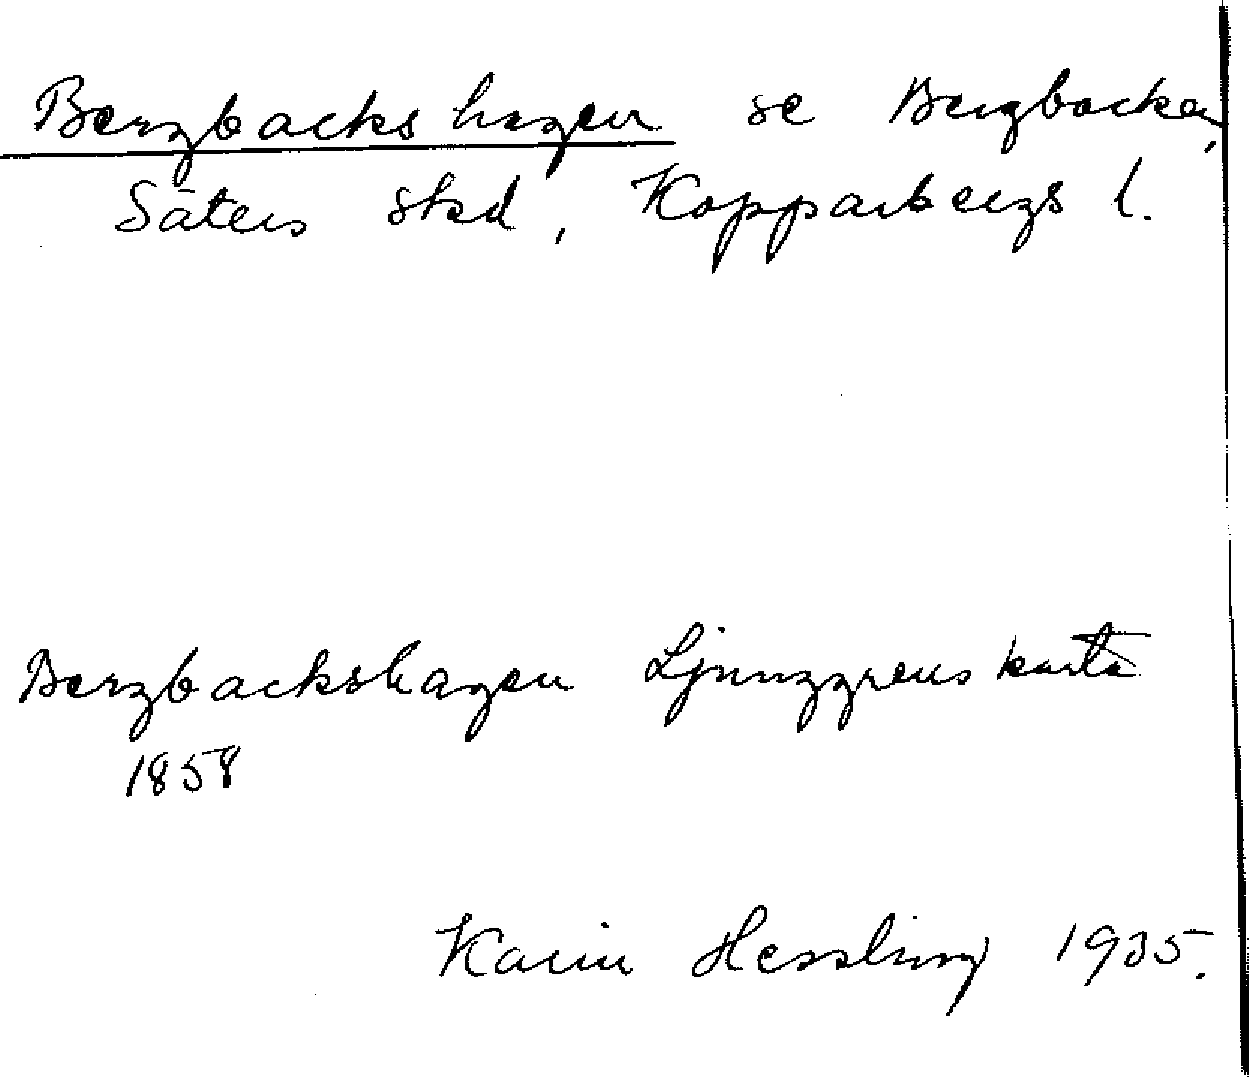 Bergbackshagen se Bergbacken,
Säters stad, Kopparbergs l.
Bergbackshagen Ljunggrens karta
1858
Karin Hessling 1935.